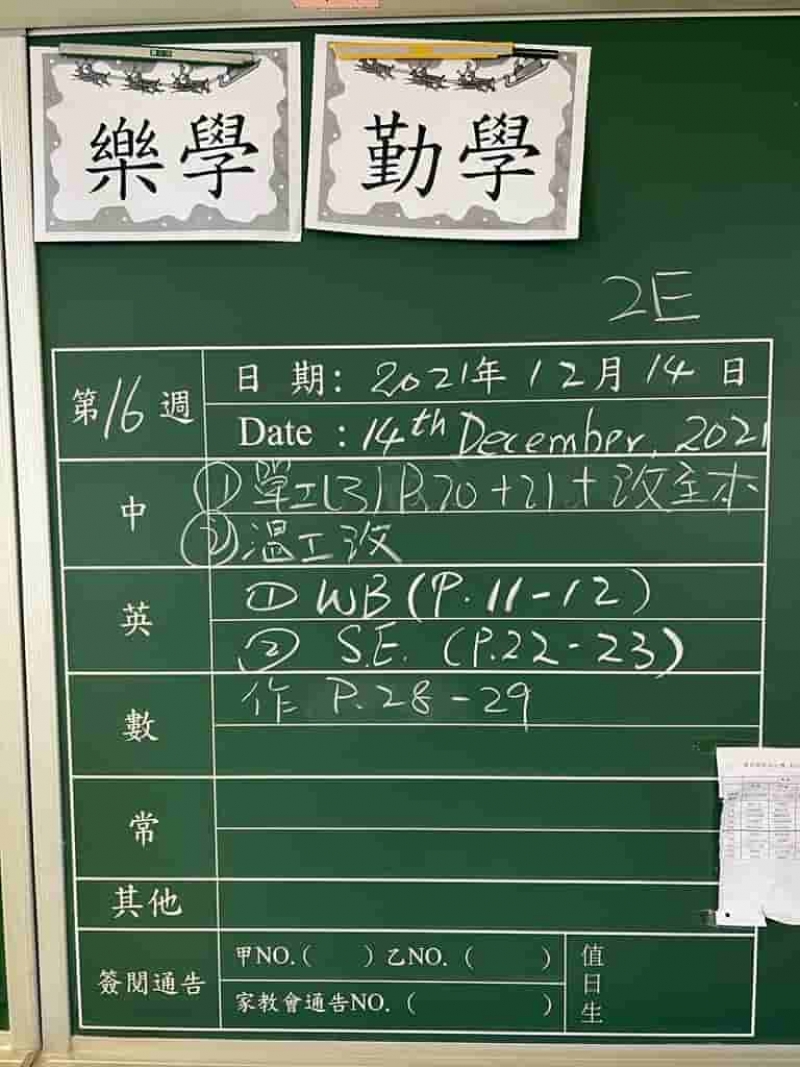 樂學
勤學
2E
第16週
日 期: 2021年 12月 14 日
Date : 14th December, 2021
中
① 單工(3) P.20+21+改全本
② 温工改
英
① WB (P.11-12)
② S.E. (P.22-23)
數
作 P.28-29
常
其他
簽閱通告
甲NO.( ) 乙NO.( )
家教會通告NO.( )
值日生